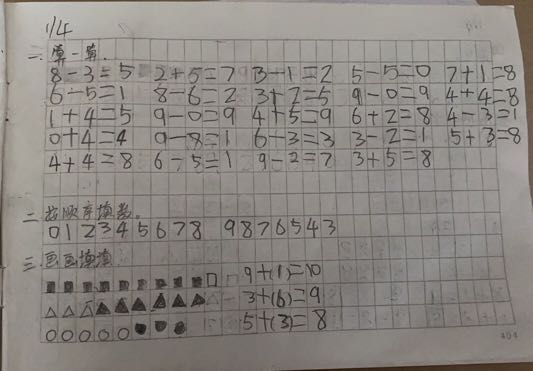 1/4
一.算一算.
8-3=5 2+5=7 3-1=2 5-5=0 7+1=8
6-5=1 8-6=2 3+2=5 9-0=9 4+4=8
1+4=5 9-0=9 4+5=9 6+2=8 4-3=1
0+4=4 9-8=1 6-3=3 3-2=1 5+3=8
4+4=8 6-5=1 9-2=7 3+5=8
二.按顺序填数。
0 1 2 3 4 5 6 7 8 9 8 7 6 5 4 3
三.画画填填
9+(1)=10
3+(6)=9
5+(3)=8